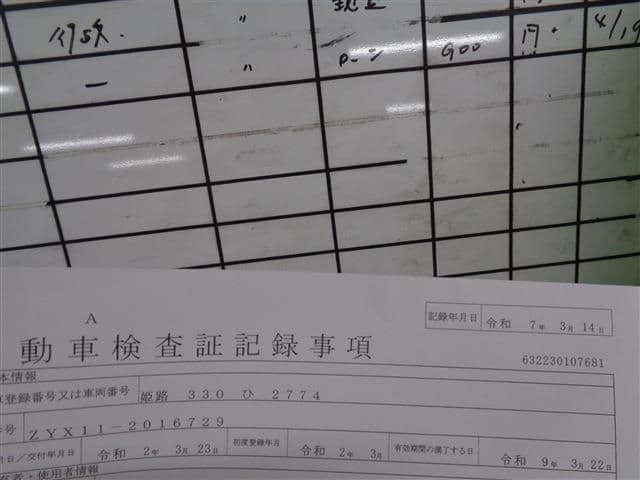 〃 現金
〃 ローン Goo 円 4/19
A
記録年月日 令和 7年 3月 14日
動車検査証記録事項
632230107681
本情報
登録番号又は車両番号 姫路 330 ひ 2774
番号 ZYX11-2016729
月日/交付年月日 令和 2年 3月 23日 初度登録年月 令和 2年 3月 有効期間の満了する日 令和 9年 3月 22日
有者・使用者情報